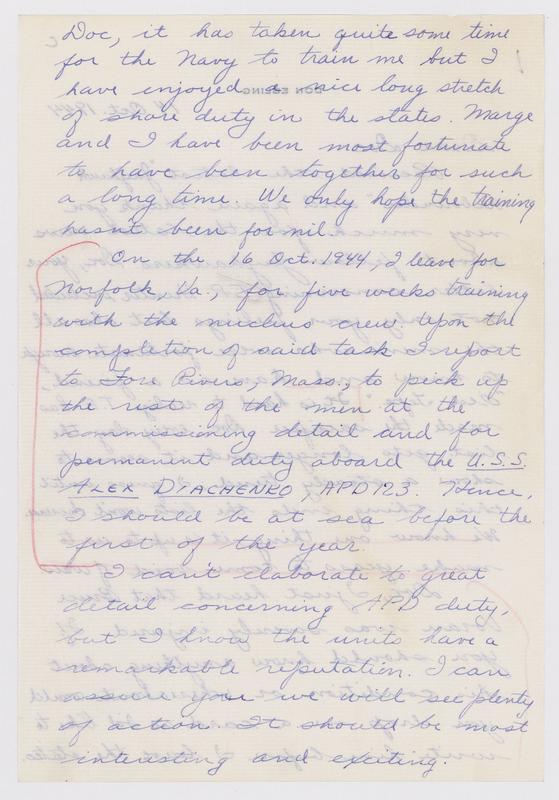 Doc, it has taken quite some time
for the Navy to train me but I
have enjoyed a nice long stretch
of shore duty in the states. Marge
and I have been most fortunate
to have been together for such
a long time. We only hope the training
hasn't been for nil.
On the 16 Oct. 1944, I leave for
Norfolk, Va., for five weeks training
with the nuclius crew. Upon the
completion of said task I report
to Fore Rivers, Mass., to pick up
the rest of the men at the
commissioning detail and for
permanent duty aboard the U.S.S.
ALEX DIACHENKO, APD 123. Hence,
I should be at sea before the
first of the year.
I can't elaborate to great
detail concerning APD duty,
but I know the units have a
remarkable reputation. I can
assure you we will see plenty
of action. It should be most
interesting and exciting.